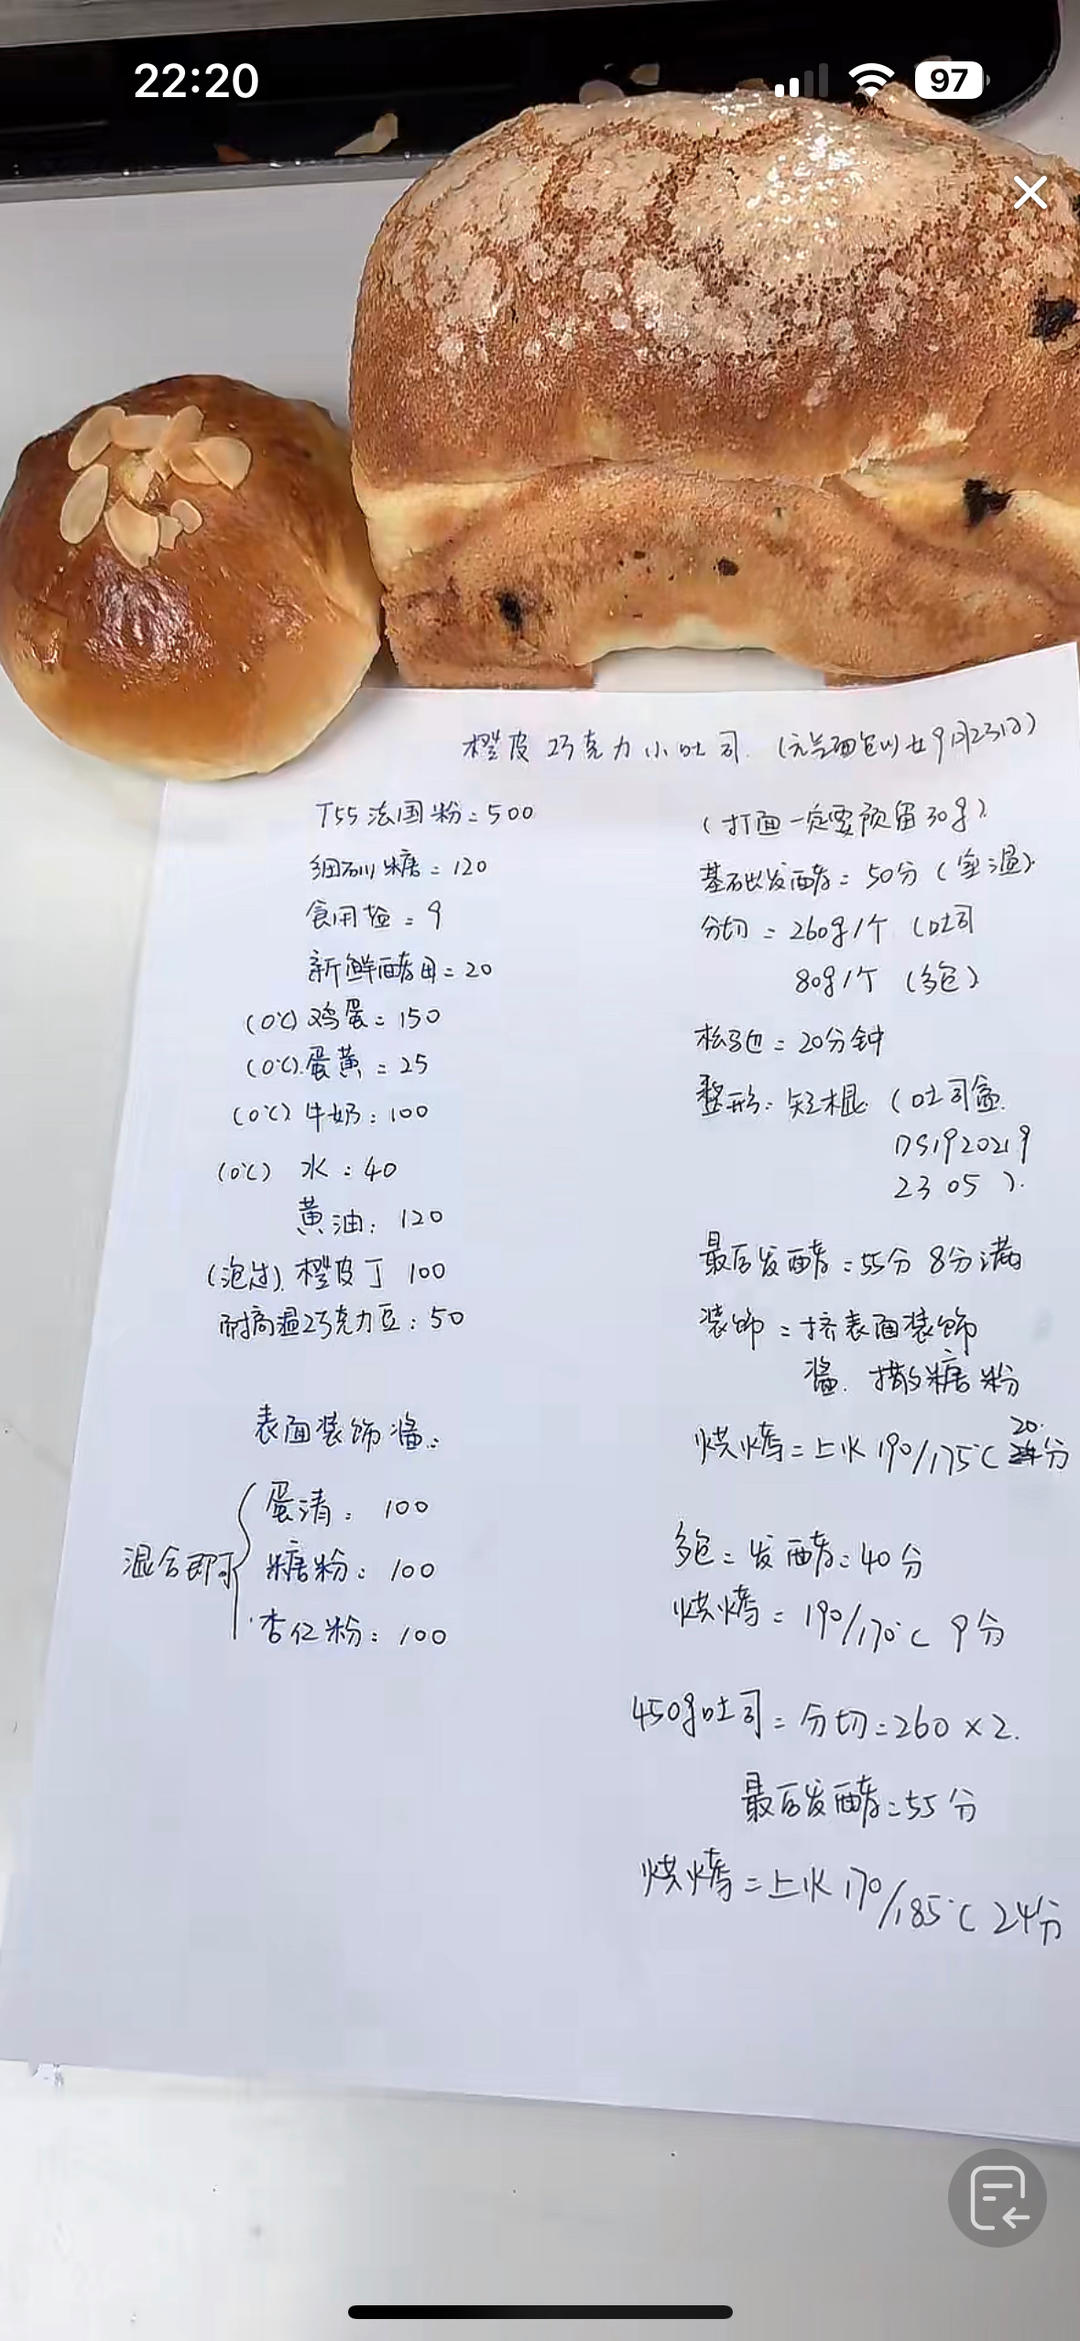 22:20
97
橙皮巧克力小吐司. (
9月23日)
T55法国粉=500
细砂糖=120
食用盐=9
新鲜酵母=20
(0℃)鸡蛋=150
(0℃).蛋黄=25
(0℃)牛奶:100
(0℃) 水:40
黄油:120
(泡过).橙皮丁 100
耐高温巧克力豆:50
表面装饰酱:
混合即可
蛋清:100
糖粉:100
杏仁粉:100
(打面一定要预留30g)
基础发酵=50分(室温).
分切=260g/个 (吐司
80g/个 (多包)
松弛=20分钟
整形:短棍 (吐司盒
DS1920219
2305).
最后发酵:55分 8分满
装饰=挤表面装饰
酱.撒糖粉
烘烤=上火190/175℃ 20.分
多包=发酵:40分
烘烤=190/170℃ 9分
450g吐司=分切=260×2.
最后发酵=55分
烘烤=上火170/185℃ 24分